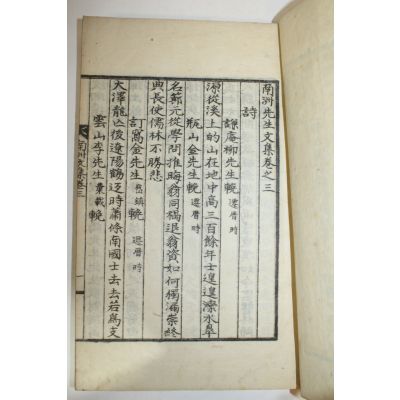 南洲先生文集卷之三
詩
謙庵柳先生輓 還曆時
源從溪上的山在地中高三百餘年士遑遑溁水皐
瓶山金先生輓 還曆時
名節元從學問推晦翁同禍退翁資如何獨漏崇終
典長使儒林不勝悲
訂窩金先生 岱鎮 輓 還曆時
大澤龍亡後遼陽鶴返時蕭條南國士去去若爲支
雲山李先生 彙載 輓
南洲文集卷三